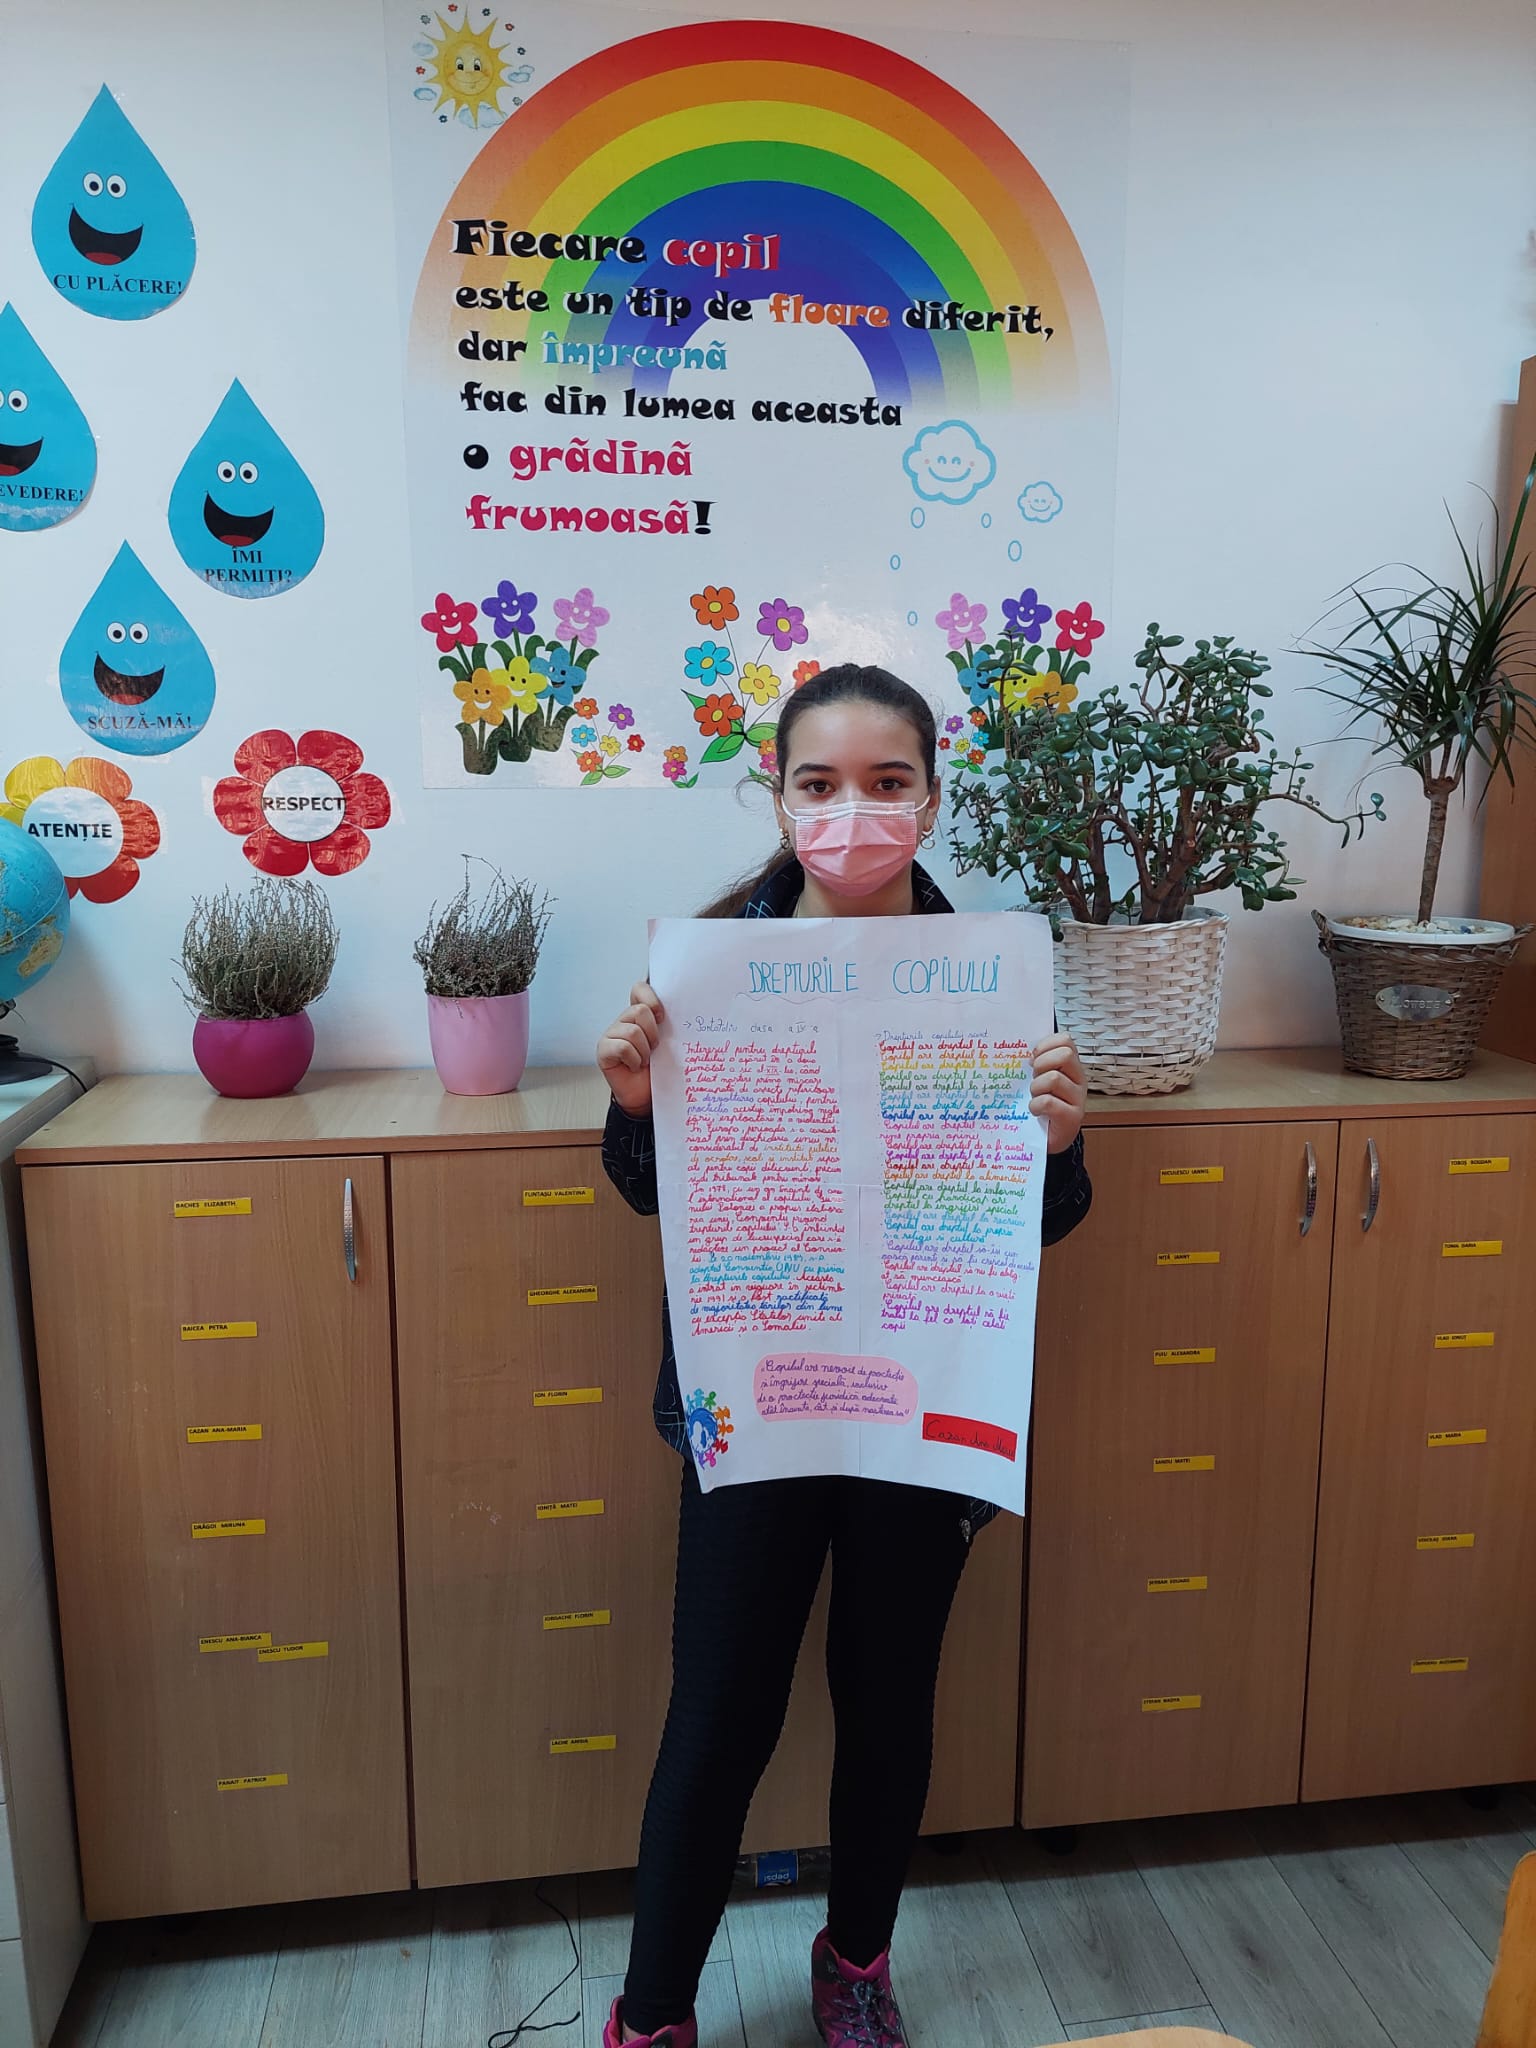 Fiecare copil
este un tip de floare diferit,
dar împreună
fac din lumea aceasta
o grădină
frumoasă!
CU PLĂCERE!
EVEDERE!
ÎMI
PERMIȚI?
SCUZĂ-MĂ!
ATENȚIE
RESPECT
DREPTURILE COPILULUI
→ Portofoliu clasa a IV-a
Interesul pentru drepturile
copilului a apărut în a doua
jumătate a sec al XIX-lea, când
a luat naștere prima mișcare
preocupată de aspecte referitoare
la dezvoltarea copilului, pentru
În Europa, perioada s-a caracte-
rizat prin deschiderea unui nr.
considerabil de instituții publice
de ocrotire, școli și instituții separ
ate pentru copii delicvenți, precum
și de tribunale pentru minori.
În 1978, cu un an înaint de anu
l internațional al copilului, Guver
nului Poloniei a propus elabora
rea unei Convenții privind
drepturile copilului. S-a înființat
un grup de lucru special care s-a
redactat un proiect al Conven-
iei. La 20 noiembrie 1989, s-a
adoptat Convenția ONU cu privire
la drepturile copilului. Aceasta
a intrat în vigoare în septemb
rie 1991 și a fost ractificată
de majoritatea țărilor din lume
cu excepția Statelor unite ale
Americii și a Somaliei.
→ Drepturile copilului sunt
Copilul are dreptul la educație
Copilul are dreptul la sănătate
Copilul are dreptul la
Copilul are dreptul la egalitate
Copilul are dreptul la joacă
Copilul are dreptul la o familie
Copilul are dreptul la odihnă
Copilul are dreptul la
Copilul are dreptul să-și exp
rime propria opinie
Copilul are dreptul de a fi
Copilul are dreptul de a fi ascultat
Copilul are dreptul la un nume
Copilul are dreptul la alimentație
Copilul are dreptul la informați
Copilul cu handicap are
dreptul la îngrijiri speciale
Copilul are dreptul la recreere
Copilul are dreptul la propria
s-a religie și cultură
Copilul are dreptul să-și cun
oască părinții și să fie crescut de aceștia
Copilul are dreptul să nu fie oblig
at să muncească
Copilul are dreptul la o viață
privată
Copilul are dreptul să fie
tratat la fel ca toți ceilați
copii
„Copilul are nevoie de proctecție
și îngrijire specială, inclusiv
de o proctecție juridică adecvată
atât înainte, cât și după nașterea sa”
Cazan Ana Maria
BACHES ELIZABETH
BAICEA PETRA
CAZAN ANA-MARIA
DRĂGOI MIRUNA
ENESCU ANA-BIANCA
ENESCU TUDOR
PANAIT PATRICE
FLINTAȘU VALENTINA
GHEORGHE ALEXANDRA
ION FLORIN
IONIȚĂ MATEI
IORDACHE FLORIN
LACHE AMIRA
NICULESCU IANNIS
NIȚĂ IANNY
PUIU ALEXANDRA
SANDU MATEI
ȘERBAN EDUARD
ȘTEFAN NADYA
TOBOȘ BOGDAN
TOMA DARIA
VLAD IONUȚ
VLAD MARIA
pepsi